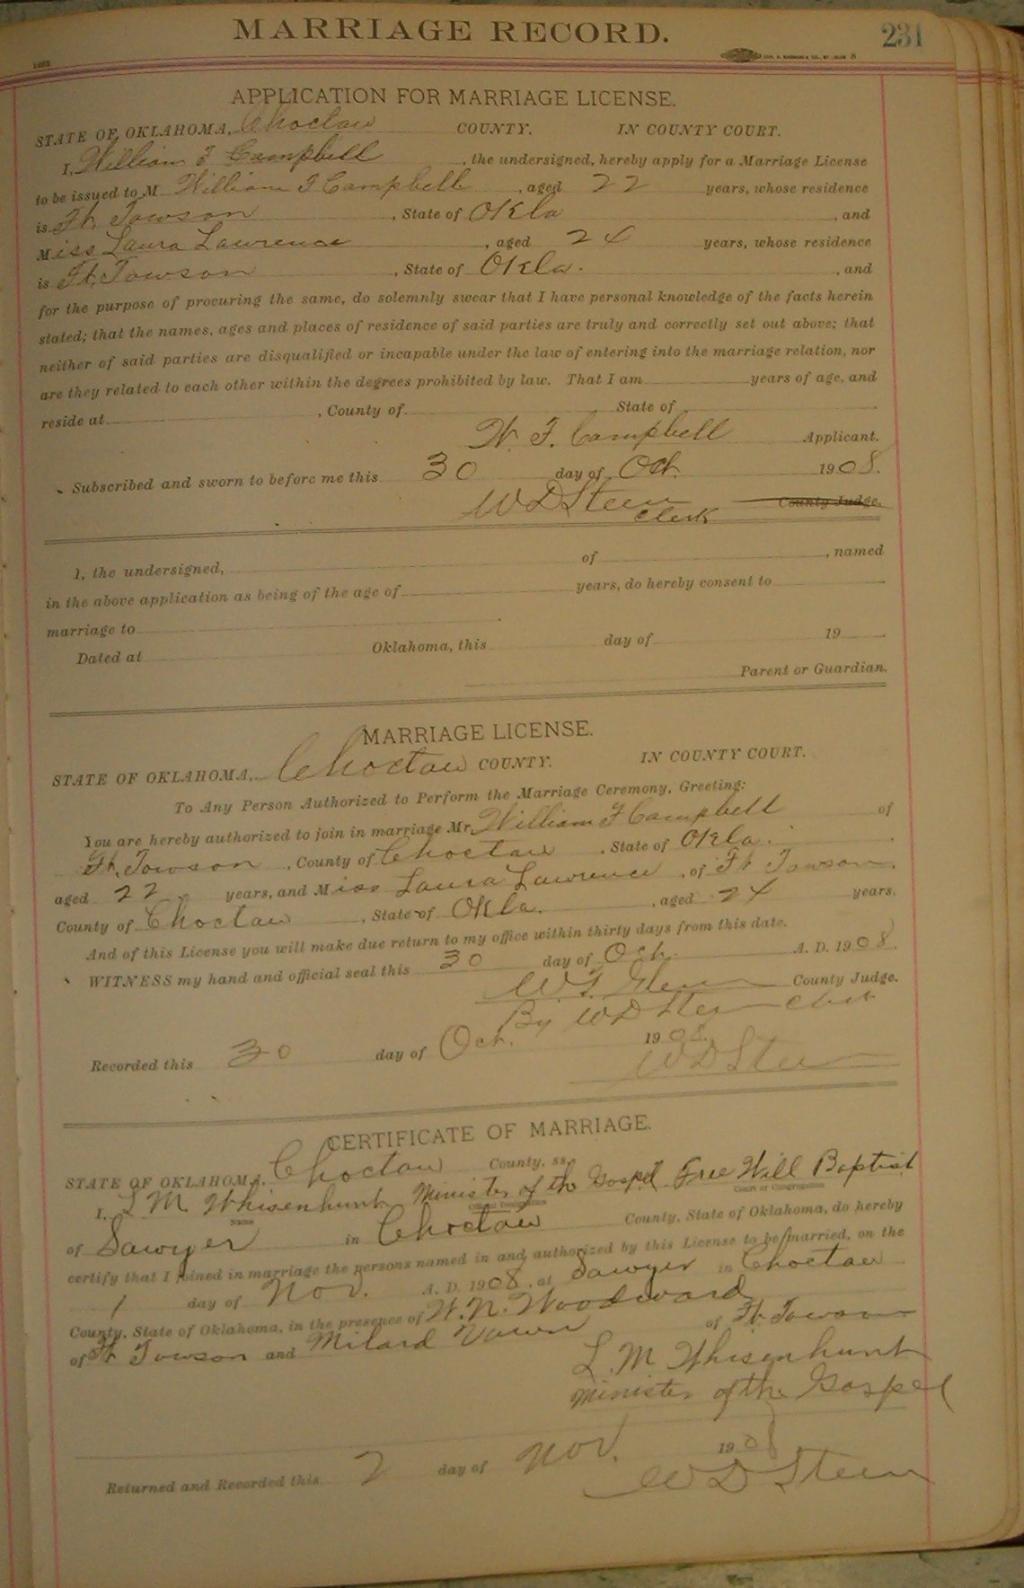 MARRIAGE RECORD.
231
APPLICATION FOR MARRIAGE LICENSE.
STATE OF OKLAHOMA, Choctaw COUNTY. IN COUNTY COURT.
I, William F Campbell, the undersigned, hereby apply for a Marriage License
to be issued to M William F Campbell, aged 22 years, whose residence
is Ft. Towson, State of Okla, and
Miss Laura Lawrence, aged 24 years, whose residence
is Ft. Towson, State of Okla., and
for the purpose of procuring the same, do solemnly swear that I have personal knowledge of the facts herein
stated; that the names, ages and places of residence of said parties are truly and correctly set out above; that
neither of said parties are disqualified or incapable under the law of entering into the marriage relation, nor
are they related to each other within the degrees prohibited by law. That I am years of age, and
reside at, County of State of
W. F. Campbell Applicant.
Subscribed and sworn to before me this 30 day of Oct. 1908.
W D Steen Clerk County Judge.
I, the undersigned, of, named
in the above application as being of the age of years, do hereby consent to
marriage to
Dated at Oklahoma, this day of 19
Parent or Guardian.
MARRIAGE LICENSE.
STATE OF OKLAHOMA, Choctaw COUNTY. IN COUNTY COURT.
To Any Person Authorized to Perform the Marriage Ceremony, Greeting:
You are hereby authorized to join in marriage Mr. William F Campbell of
Ft. Towson, County of Choctaw, State of Okla.
aged 22 years, and Miss Laura Lawrence, of Ft Towson,
County of Choctaw, State of Okla., aged 24 years.
And of this License you will make due return to my office within thirty days from this date.
WITNESS my hand and official seal this 30 day of Oct. A. D. 1908.
W. T. Glenn County Judge.
By W D Steen Clerk
Recorded this 30 day of Oct. 1908.
W D Steen
CERTIFICATE OF MARRIAGE.
STATE OF OKLAHOMA, Choctaw County, ss.
I, L M Whisenhunt Minister of the Gospel Free Will Baptist
Name
of Sawyer in Choctaw County, State of Oklahoma, do hereby
certify that I joined in marriage the persons named in and authorized by this License to be married, on the
1 day of Nov. A. D. 1908, at Sawyer in Choctaw
County, State of Oklahoma, in the presence of W. N. Woodward
of Ft Towson and Milard Vawn of Ft Towson
L M Whisenhunt
Minister of the Gospel
Returned and Recorded this 2 day of Nov. 1908
W D Steen